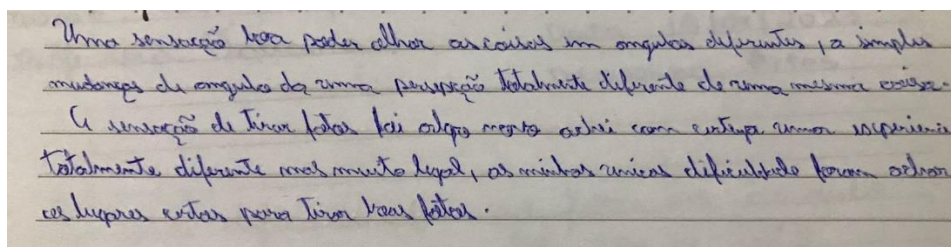 Uma sensação boa poder olhar as coisas em angulos diferentes, a simples
mudanças de angulo da uma persepção totalmente diferente de uma mesma coisa.
A sensação de tirar fotos foi algo achei com certeza uma experienci
totalmente diferente mas muito legal, as minhas unicas dificuldade foram achar
os lugares certos para tirar boas fotos.